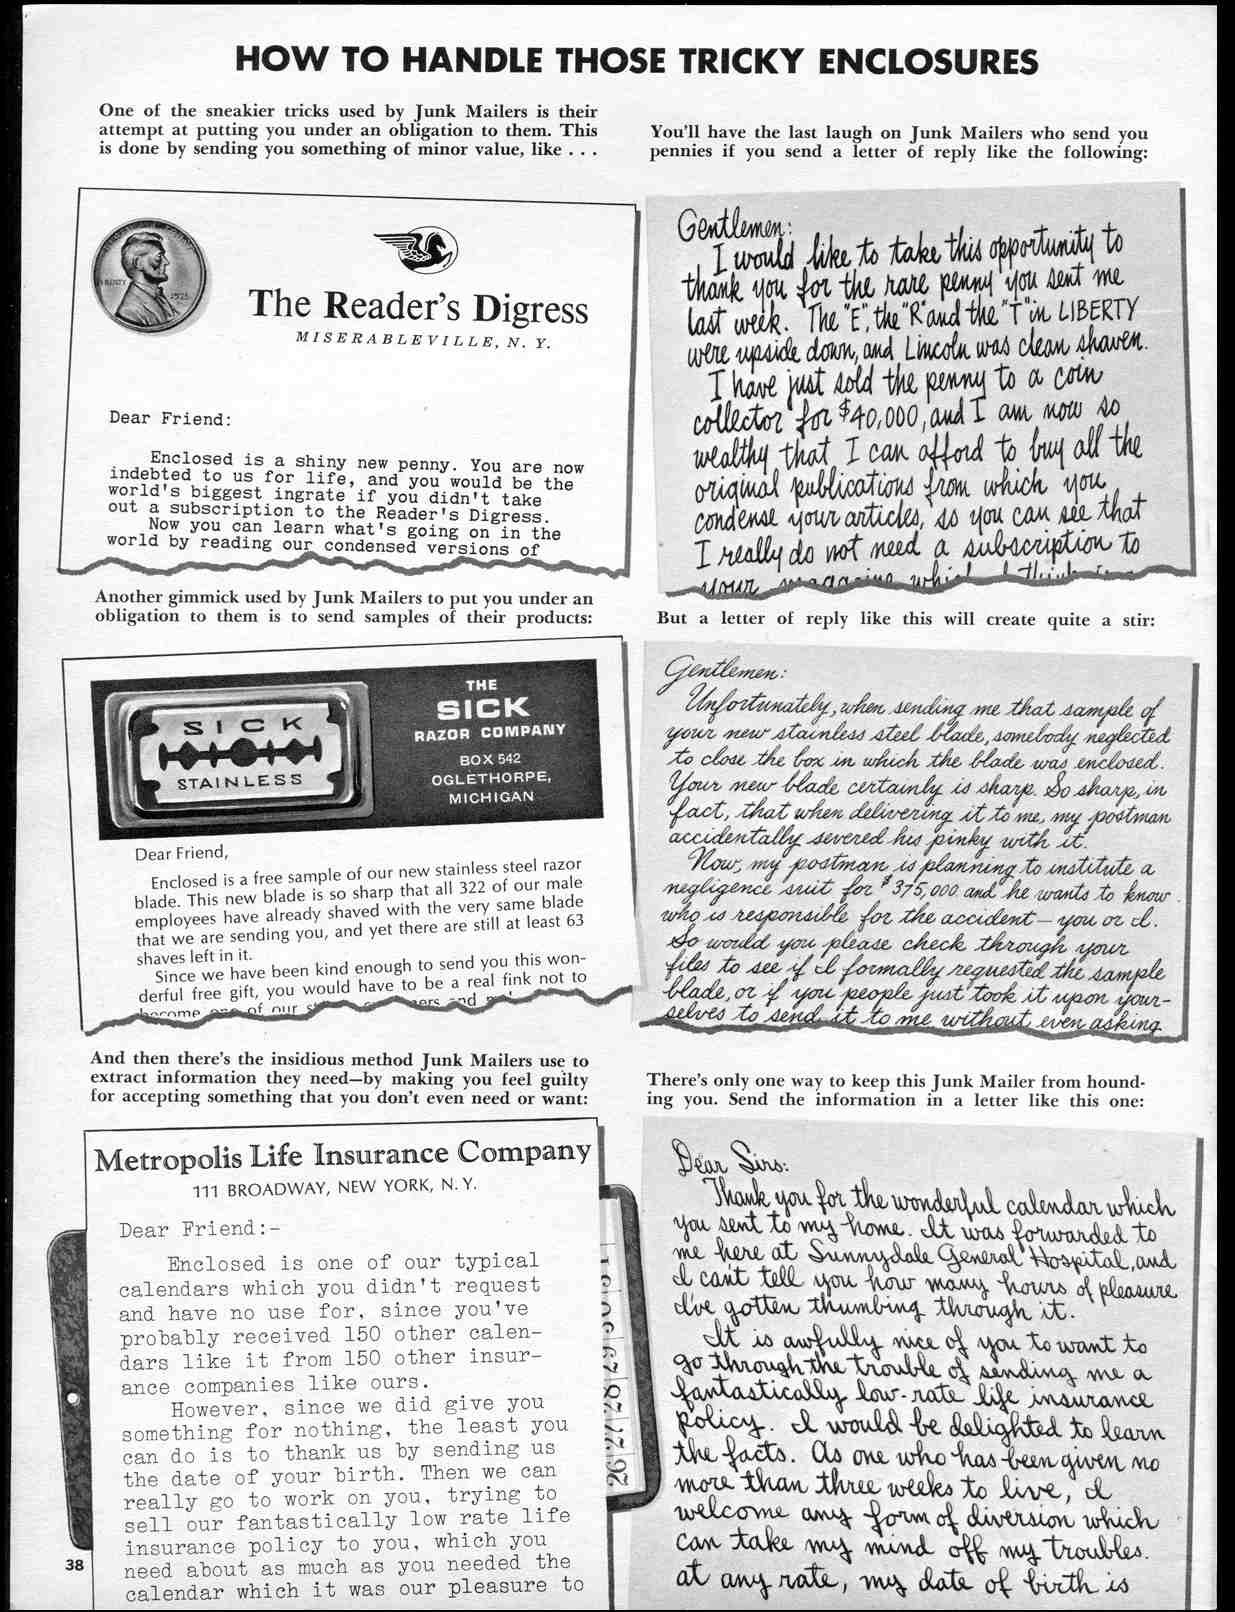 HOW TO HANDLE THOSE TRICKY ENCLOSURES
One of the sneakier tricks used by Junk Mailers is their
attempt at putting you under an obligation to them. This
is done by sending you something of minor value, like . . .
You'll have the last laugh on Junk Mailers who send you
pennies if you send a letter of reply like the following:
LIBERTY
The Reader's Digress
MISERABLEVILLE, N. Y.
Dear Friend:
Enclosed is a shiny new penny. You are now
indebted to us for life, and you would be the
world's biggest ingrate if you didn't take
out a subscription to the Reader's Digress.
Now you can learn what's going on in the
world by reading our condensed versions of
Gentlemen:
I would like to take this opportunity to
thank you for the rare penny you sent me
last week. The "E", the "R" and the "T" in LIBERTY
were upside down, and Lincoln was clean shaven.
I have just sold the penny to a coin
collector for $40,000, and I am now so
wealthy that I can afford to buy all the
original publications from which you
condense your articles, so you can see that
I really do not need a subscription to
your magazine which I think is
Another gimmick used by Junk Mailers to put you under an
obligation to them is to send samples of their products:
But a letter of reply like this will create quite a stir:
SICK
STAINLESS
THE
SICK
RAZOR COMPANY
BOX 542
OGLETHORPE,
MICHIGAN
Dear Friend,
Enclosed is a free sample of our new stainless steel razor
blade. This new blade is so sharp that all 322 of our male
employees have already shaved with the very same blade
that we are sending you, and yet there are still at least 63
shaves left in it.
Since we have been kind enough to send you this won-
derful free gift, you would have to be a real fink not to
become one of our
Gentlemen:
Unfortunately, when sending me that sample of
your new stainless steel blade, somebody neglected
to close the box in which the blade was enclosed.
Your new blade certainly is sharp. So sharp, in
fact, that when delivering it to me, my postman
accidentally severed his pinky with it.
Now, my postman is planning to institute a
negligence suit for $375,000 and he wants to know
who is responsible for the accident — you or I.
So would you please check through your
files to see if I formally requested the sample
blade, or if you people just took it upon your-
selves to send it to me without even asking
And then there's the insidious method Junk Mailers use to
extract information they need—by making you feel guilty
for accepting something that you don't even need or want:
There's only one way to keep this Junk Mailer from hound-
ing you. Send the information in a letter like this one:
Metropolis Life Insurance Company
111 BROADWAY, NEW YORK, N. Y.
Dear Friend:-
Enclosed is one of our typical
calendars which you didn't request
and have no use for, since you've
probably received 150 other calen-
dars like it from 150 other insur-
ance companies like ours.
However, since we did give you
something for nothing, the least you
can do is to thank us by sending us
the date of your birth. Then we can
really go to work on you, trying to
sell our fantastically low rate life
insurance policy to you, which you
need about as much as you needed the
calendar which it was our pleasure to
Dear Sirs:
Thank you for the wonderful calendar which
you sent to my home. It was forwarded to
me here at Sunnydale General Hospital, and
I can't tell you how many hours of pleasure
I've gotten thumbing through it.
It is awfully nice of you to want to
go through the trouble of sending me a
fantastically low-rate life insurance
policy. I would be delighted to learn
the facts. As one who has been given no
more than three weeks to live, I
welcome any form of diversion which
can take my mind off my troubles.
at any rate, my date of birth is
38